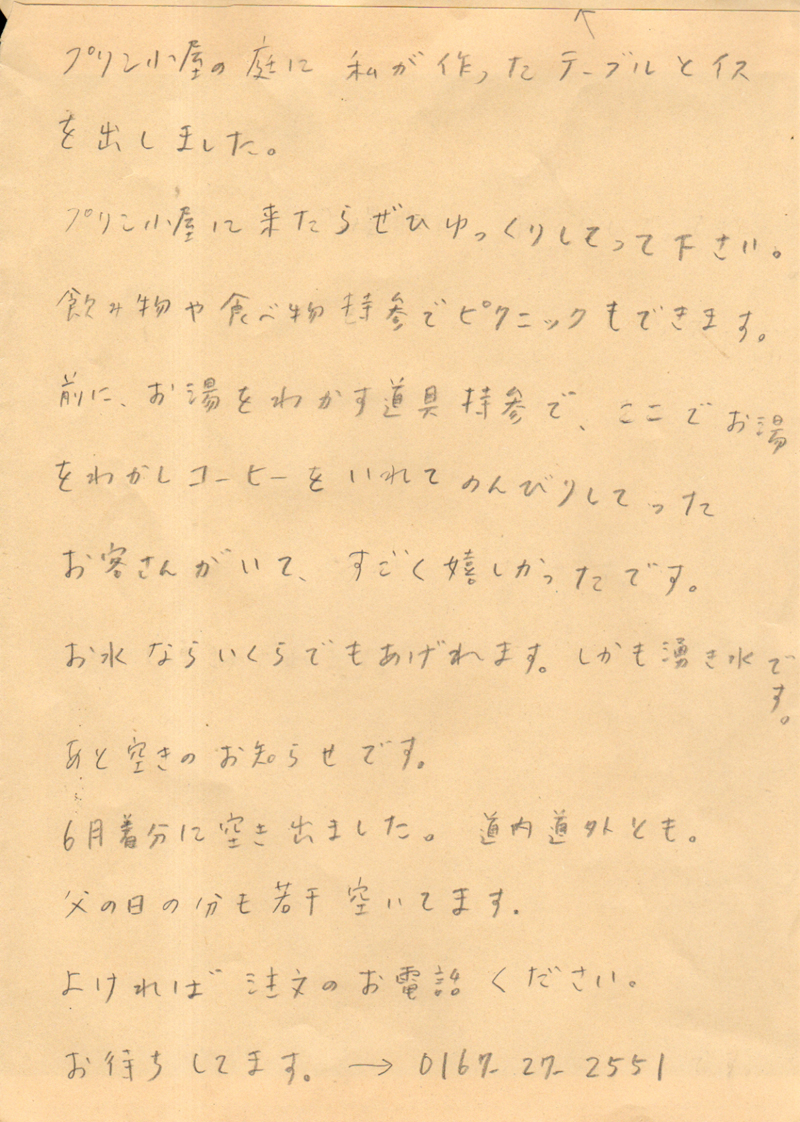 プリン小屋の庭に 私が作ったテーブルとイス
を出しました。
プリン小屋に来たらぜひゆっくりしてって下さい。
飲み物や食べ物持参でピクニックもできます。
前に、お湯をわかす道具持参で、ここでお湯
をわかしコーヒーをいれてのんびりしてった
お客さんがいて、すごく嬉しかったです。
お水ならいくらでもあげれます。しかも湧き水です。
あと空きのお知らせです。
6月着分に空き出ました。 道内道外とも。
父の日の分も若干空いてます.
よければ 注文のお電話ください。
お待ちしてます。→ 0167-27-2551